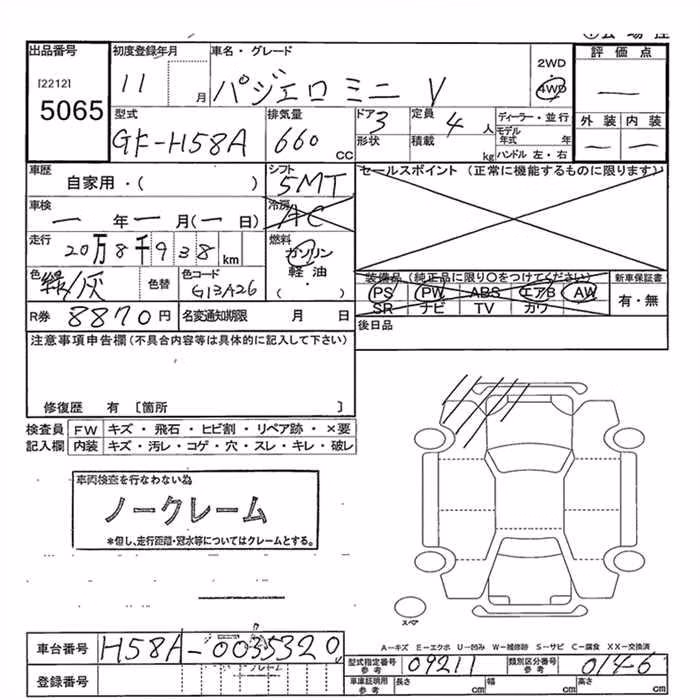 出品番号
[2212]
5065
初度登録年月
11 月
車名・グレード
パジェロミニ V
2WD
4WD
評価点
—
外装 内装
— —
型式
GF-H58A
排気量
660 CC
ドア 3
形状
定員 4 人
積載 kg
ディーラー・並行
モデル年式 年
ハンドル 左・右
車歴
自家用・( )
シフト
5MT
冷房
AC
セールスポイント (正常に機能するものに限ります)
車検
— 年 — 月 (— 日)
走行
20万8千938 km
燃料
ガソリン
軽油
( )
色
緑/灰
色替
色コード
G13A26
装備品 (純正品に限り○をつけてください)
PS PW ABS エアB AW
SR ナビ TV カワ
新車保証書
有・無
R券 8870円
名変通知期限 月 日
後日品
注意事項申告欄(不具合内容等は具体的に記入して下さい)
修復歴 有 [箇所 ]
検査員記入欄
FW キズ・飛石・ヒビ割・リペア跡・×要
内装 キズ・汚レ・コゲ・穴・スレ・キレ・破レ
車両検査を行なわない為
ノークレーム
*但し、走行距離・冠水等についてはクレームとする。
スペア
A-キズ E-エクボ U-凹み W-補修跡 S-サビ C-腐食 XX-交換済
車台番号 H58A-0035320
登録番号
型式指定番号 参考 09211
類別区分番号 参考 0146
車庫証明用 参考 長さ cm 幅 cm 高さ cm